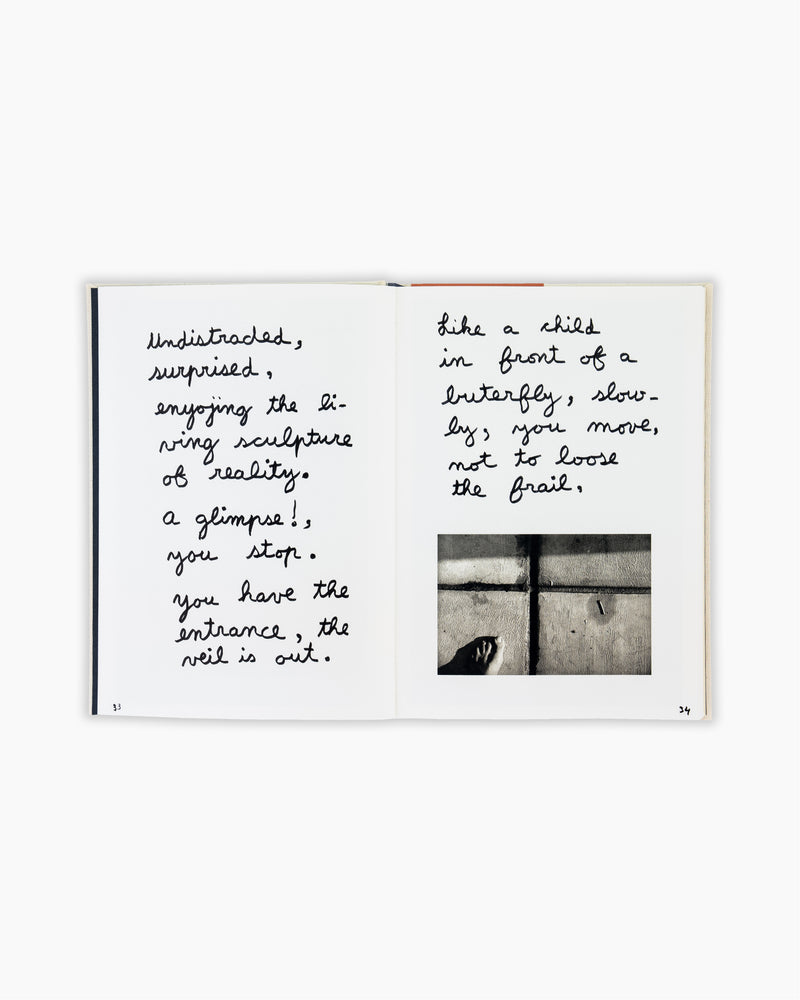 Undistracted,
surprised,
enyojing the li-
ving sculpture
of reality.
A glimpse!,
you stop.
you have the
entrance, the
veil is out.
33
Like a child
in front of a
buterfly, slow-
ly, you move,
not to loose
the frail.
34